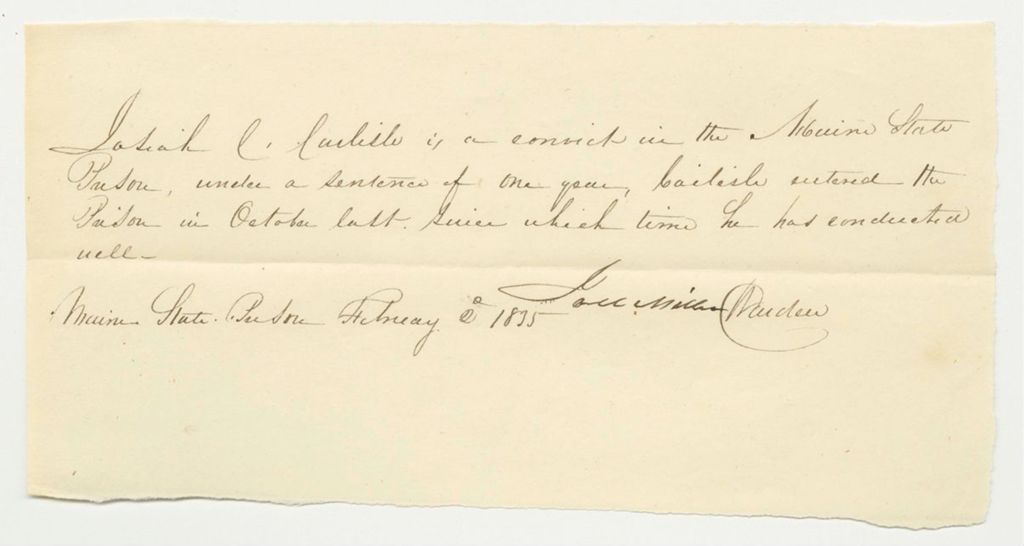 Josiah C. Carlisle is a convict in the Maine State
Prison, under a sentence of one year, Carlisle entered the
Prison in October last. since which time he has conducted
well-
Maine State Prison February 2d 1835 Joel Miller Warden